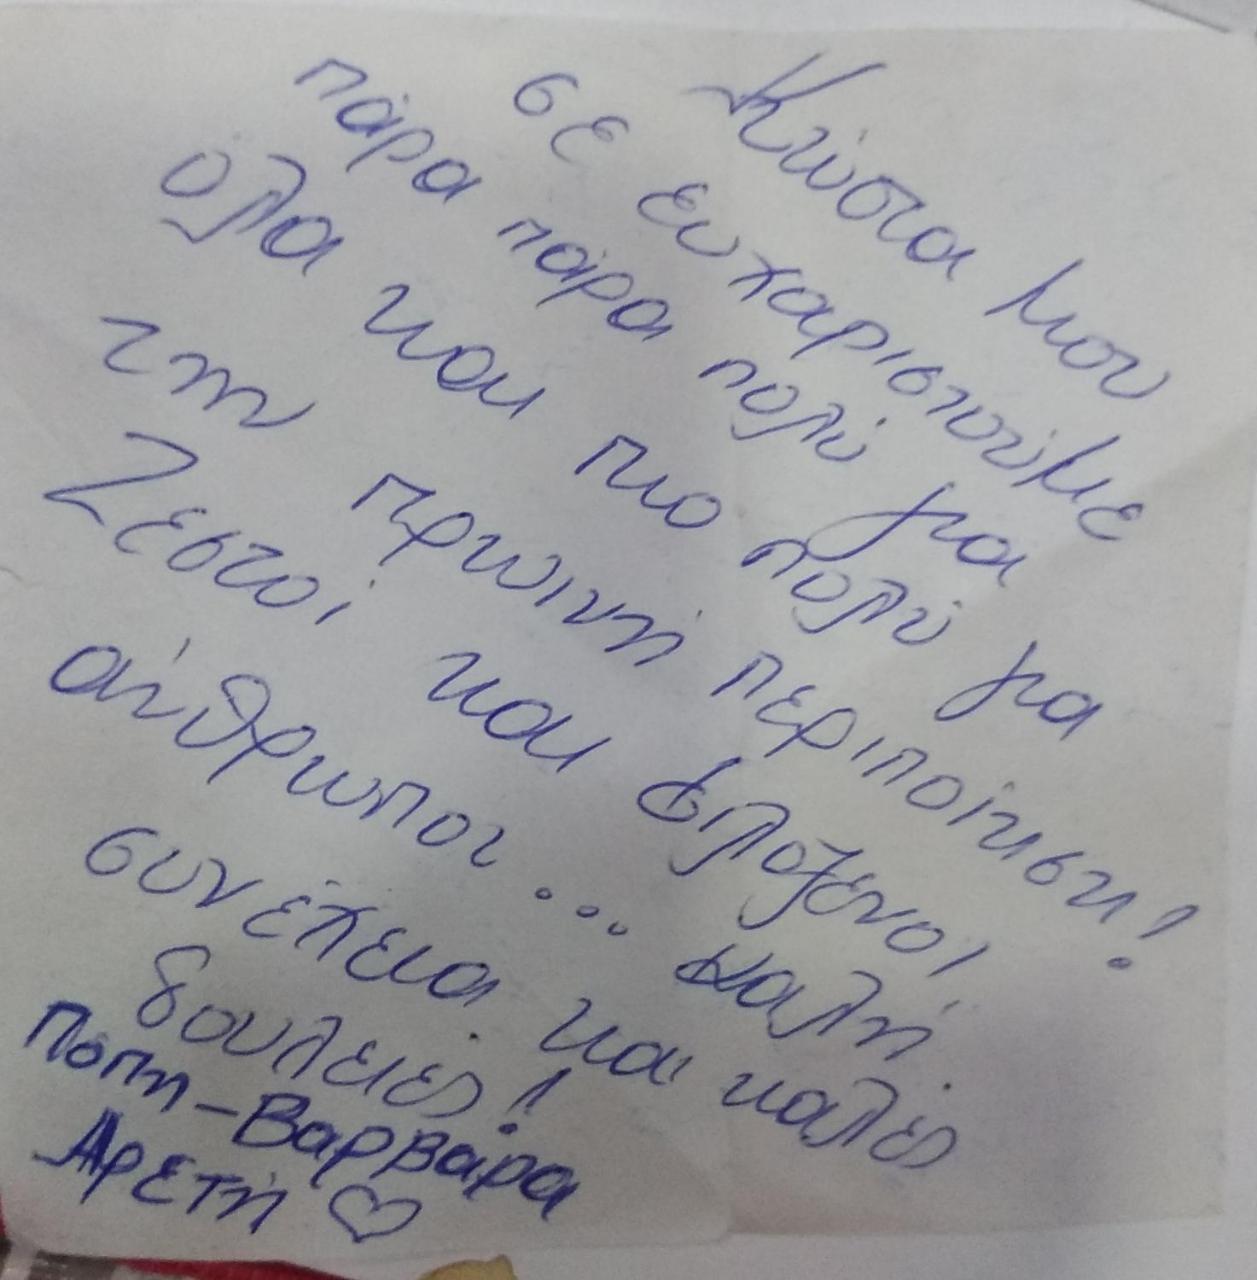 Κώστα μου
σε ευχαριστούμε
πάρα πάρα πολύ για
όλα και πιο πολύ για
την πρωινή περιποίηση!
Ζεστοί και φιλόξενοι
άνθρωποι... καλή
συνέχεια και καλές
δουλειές!
Πόπη-Βαρβάρα
Αρετή ♡